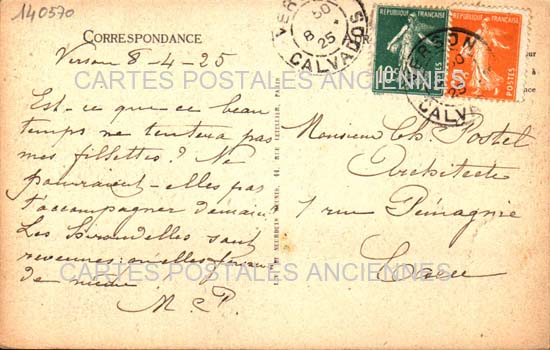 140570
CORRESPONDANCE
Verson 8-4-25
Est-ce que ce beau
temps ne tentera pas
mes fillettes ? Ne
pourraient-elles pas
t'accompagner demain ?
Les hirondelles sont
revenues : qu'elles fassent
de même
M. P.
VERSON
8
25
CALVADOS
REPUBLIQUE FRANÇAISE
10c
POSTES
REPUBLIQUE FRANÇAISE
POSTES
VERSON
CALVADOS
Monsieur Ch. Postel
Architecte
1 rue Pémagnie
Caen
CARTES POSTALES ANCIENNES
CARTES POSTALES ANCIENNES